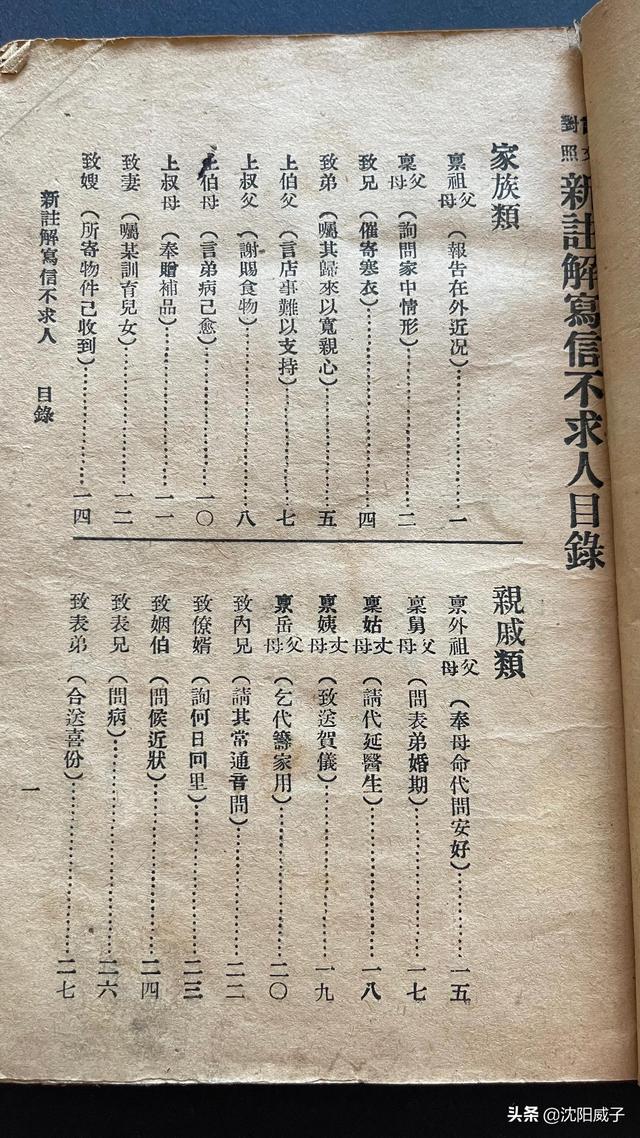 對照
新註解寫信不求人目錄
家族類
禀祖父母（報告在外近況）一
禀父母（詢問家中情形）二
致兄（催寄寒衣）四
致弟（囑其歸來以寬親心）五
上伯父（言店事難以支持）七
上叔父（謝賜食物）八
上伯母（言弟病已愈）一〇
上叔母（奉贈補品）一一
致妻（囑某訓育兒女）一二
致嫂（所寄物件己收到）一四
親戚類
禀外祖父母（奉母命代問安好）一五
禀舅父母（問表弟婚期）一七
禀姑丈母（請代延醫生）一八
禀姨丈母（致送賀儀）一九
禀岳父母（乞代籌家用）二〇
致內兄（請其常通音問）二二
致僚婿（詢何日回里）二三
致姻伯（問候近狀）二四
致表兄（問病）二六
致表弟（合送喜份）二七
新註解寫信不求人 目錄
一
头条 @沈阳威子